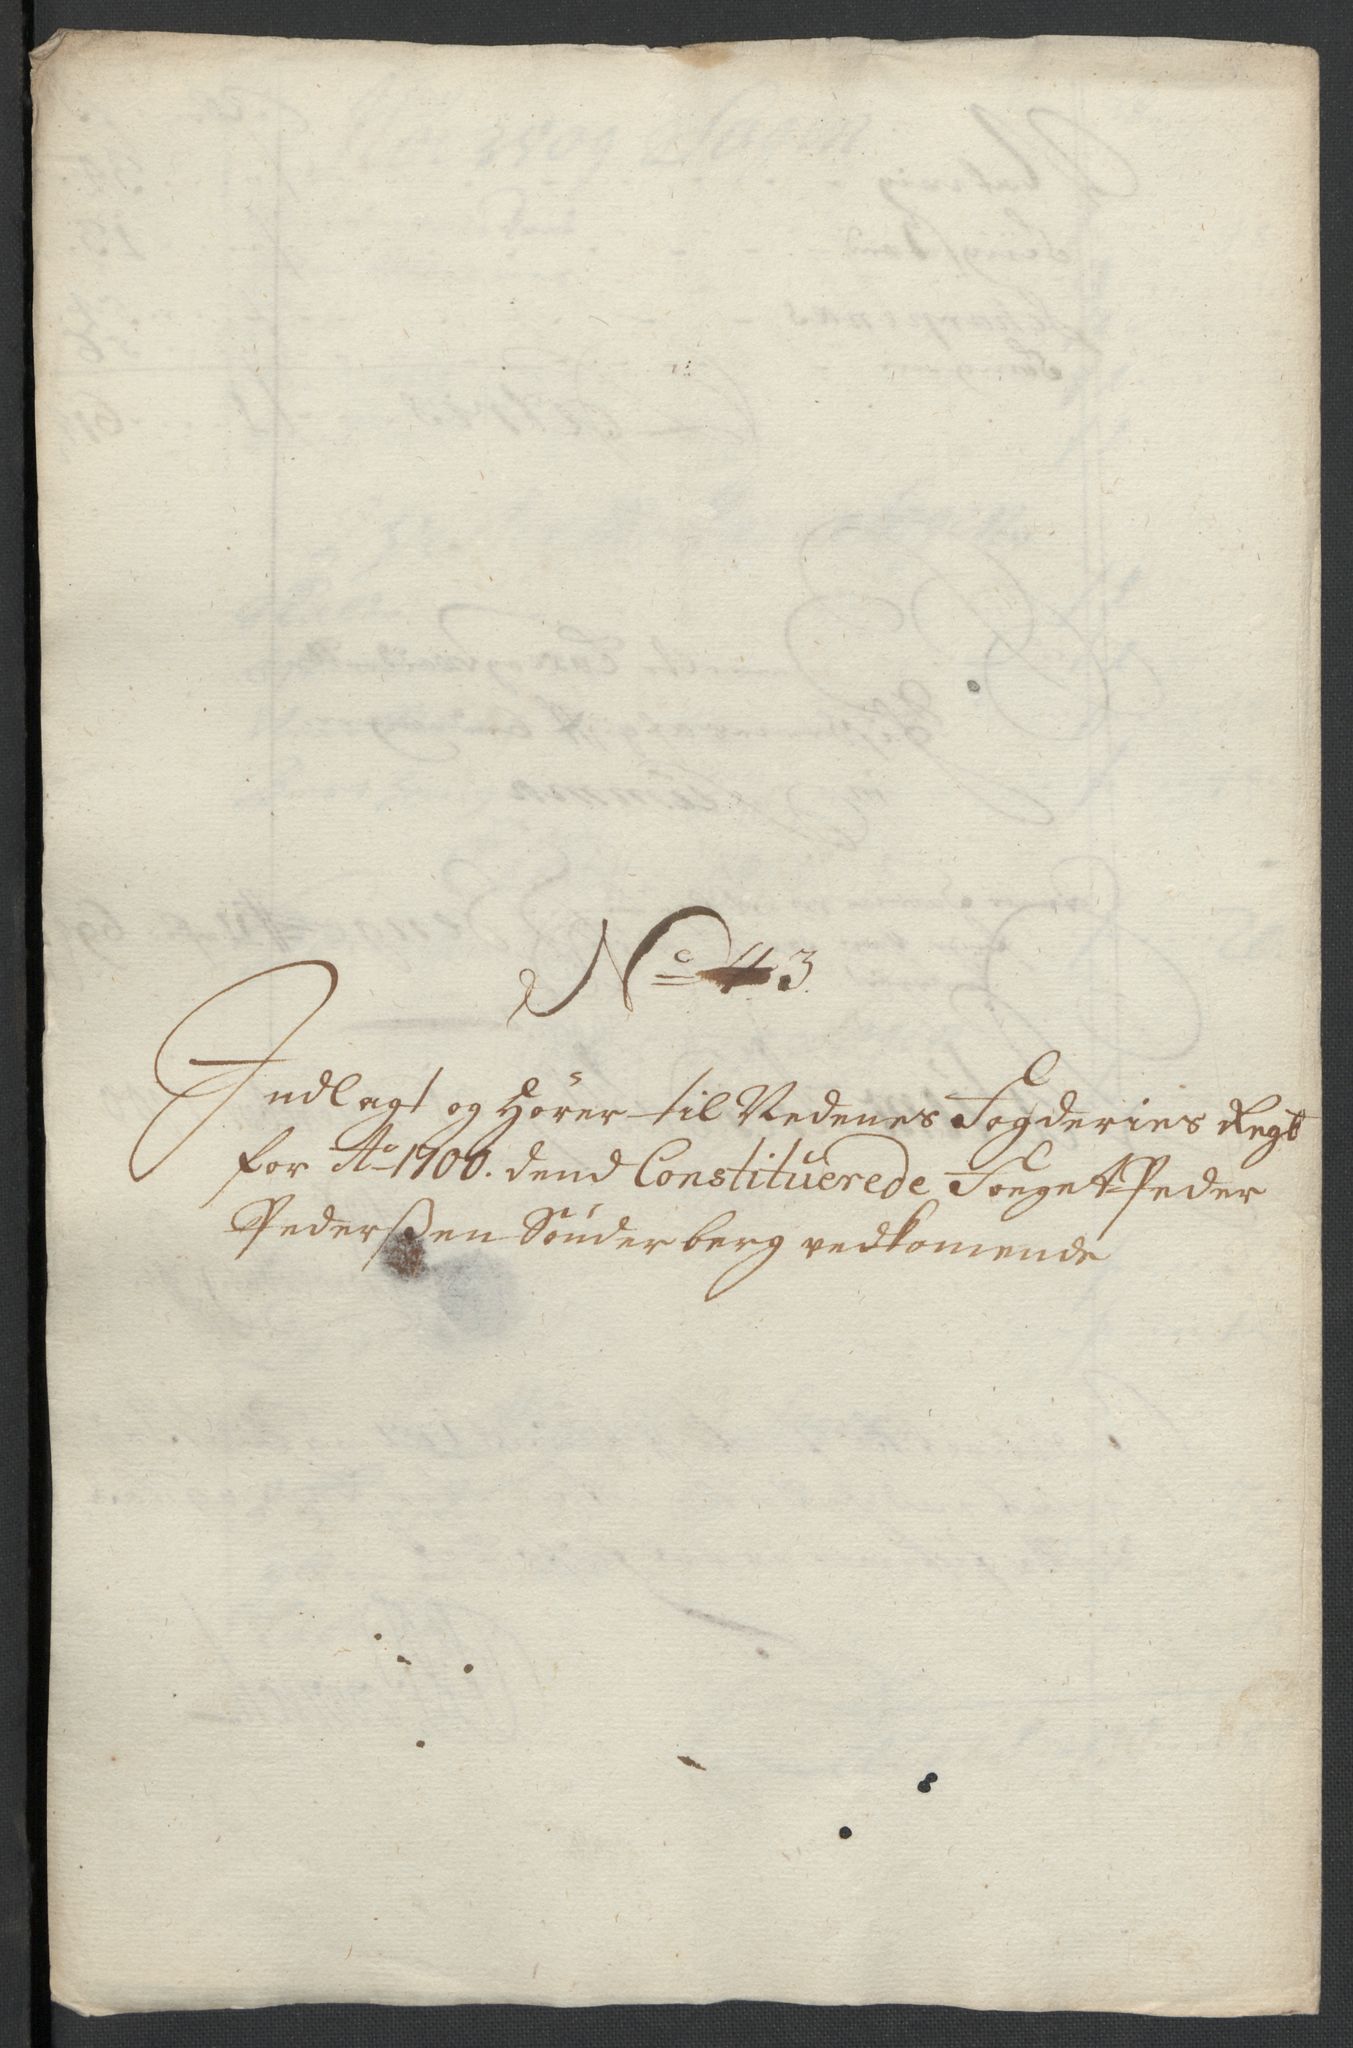 No 43
Indlagt og Hører til Nedenes Fogderies Regb
for Ao 1700. dend Constituerede Foeget Peder
Pederßen Sønderberg vedkomende